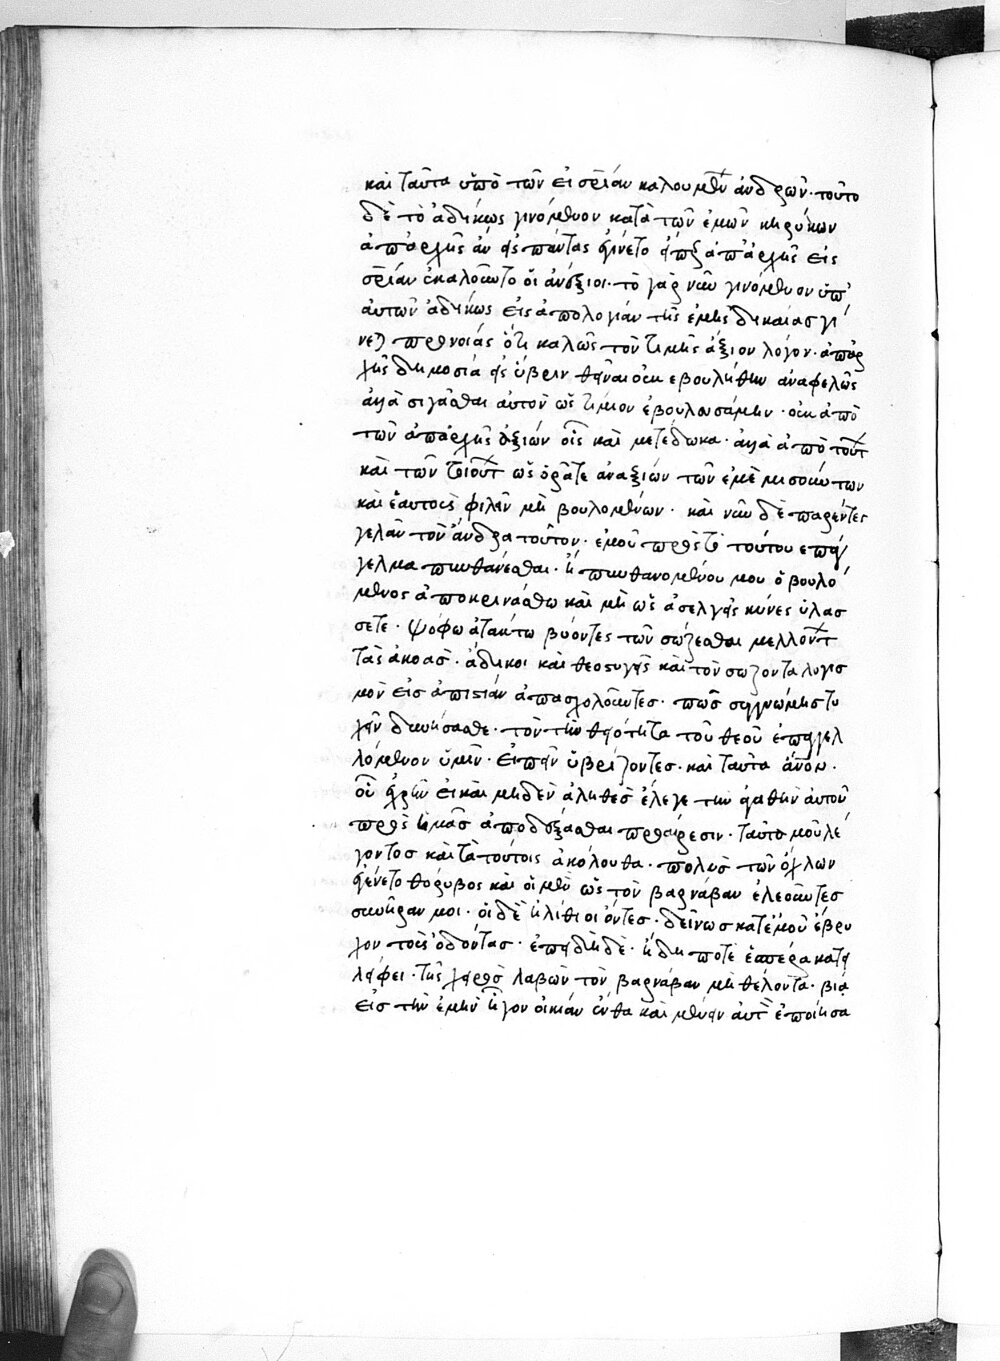 καὶ ταῦτα ὑπὸ τῶν εἰς θείαν καλουμένων ἀνδρῶν· τοῦτο
δὲ τὸ ἀδίκως γινόμενον κατὰ τῶν ἐμῶν κηρύκων
ἀπ' ἀρχῆς ἂν εἰς πάντας ἐγίνετο ἀπ' ἀρχῆς εἰς
ἐκαλοῦντο οἱ ἀνάξιοι· τὸ γὰρ νῦν γινόμενον ὑπ'
αὐτῶν ἀδίκως εἰς ἀπολογίαν τῆς ἐμῆς δικαίας γί
νεται προνοίας ὅτι καλῶς τὸν τιμῆς ἄξιον λόγον· ἀπαρ
χῆς δημοσίᾳ εἰς ὕβριν θεῖναι οὐκ εβουλήθην ἀναφελῶς
ἀλλὰ σιγᾶσθαι αυτὸν ὡς τίμιον ἐβουλευσάμην· οὐκ ἀπὸ
τῶν ἀπαρχῆς ἀξίων οἷς καὶ μετέδωκα· ἀλλὰ ἀπὸ τούτων
καὶ τῶν τοιούτων ὡς ὁρᾶτε αναξίων τῶν ἐμὲ μισούντων
καὶ ἑαυτοὺς φιλεῖν μὴ βουλομένων· καὶ νῦν δὲ παρέντες
γελᾶν τὸν ἄνδρα τοῦτον· εμοῦ πρὸς τὸ τούτου επάγ
γελμα πυνθάνεσθαι· ἢ πυνθανομένου μου ὁ βουλό
μενος ἀποκρινάσθω καὶ μὴ ὡς ἀσελγεῖς κύνες ὑλάσ
σετε· ψόφω ἀτάκτω βύοντες τῶν σώζεσθαι μελλόντων
τὰς ἀκοάς· ἄδικοι καὶ θεοστυγεῖς καὶ τὸν σώζοντα λογισ
μὸν εἰς ἀπιστίαν ἀπασχολοῦντες· πῶς συγγνώμης τυ
χεῖν δυνήσεσθε· τὸν τὴν θεότητα τοῦ θεοῦ ἐπαγγελ
λόμενον ὑμῖν· εἰπεῖν ὑβρίζοντες· καὶ ταῦτα ἀνδρων·
ὃν ἐχρῆν εἰ καὶ μηδὲν ἀληθὲς ἔλεγε τὴν ἀγαθὴν αὐτοῦ
πρὸς ἡμᾶς ἀποδέξασθαι προαίρεσιν· ταῦτά μου λέ
γοντος καὶ τὰ τούτοις ἀκόλουθα· πολὺς τῶν ὄχλων
ἐγένετο θόρυβος καὶ οἱ μὲν ὡς τὸν βαρνάβαν ἐλεοῦντες
συνῆραν μοι· οἱ δὲ ἠλίθιοι ὄντες· δεινῶς κατ' ἐμοῦ ἔβρυ
χον τοὺς ὀδόντας· ἐπειδὴ δὲ· ἤδη ποτὲ ἑσπέρα κατει
λήφει· τῆς χειρὸς λαβὼν τὸν βαρνάβαν μὴ θέλοντα· βίᾳ
εἰς τὴν ἐμὴν ἦγον οἰκίαν ἔνθα καὶ μένειν αὐτὸν ἐποίησα